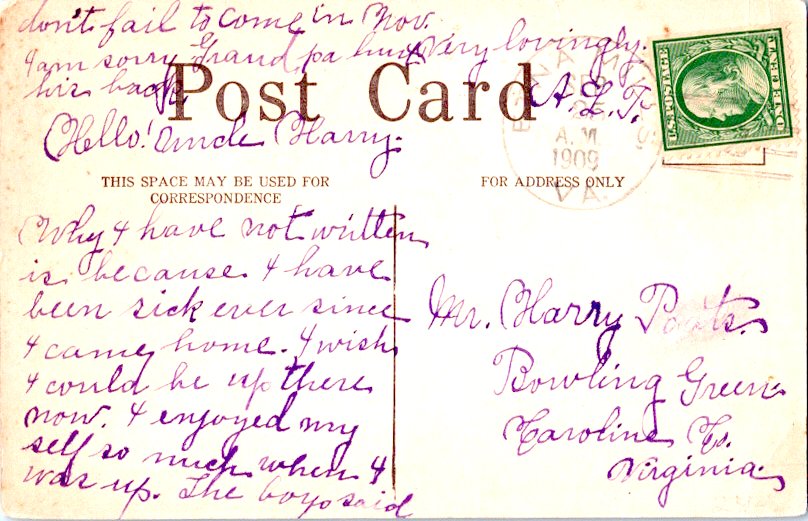 don't fail to come in Nov.
I am sorry Grand pa hurt Very lovingly.
his back. A. L. T.
Post Card
Hello! Uncle Harry.
THIS SPACE MAY BE USED FOR
CORRESPONDENCE
FOR ADDRESS ONLY
A.M.
1909
VA.
U.S. POSTAGE
Why I have not written
is because I have
been sick ever since
I came home. I wish
I could be up there
now. I enjoyed my
self so much when I
was up. The boys said
Mr. Harry Poats.
Bowling Green
Caroline Co.
Virginia.